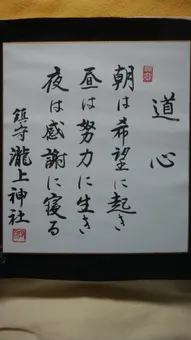 道心
朝は希望に起き
昼は努力に生き
夜は感謝に寝る
鎮守 瀧上神社